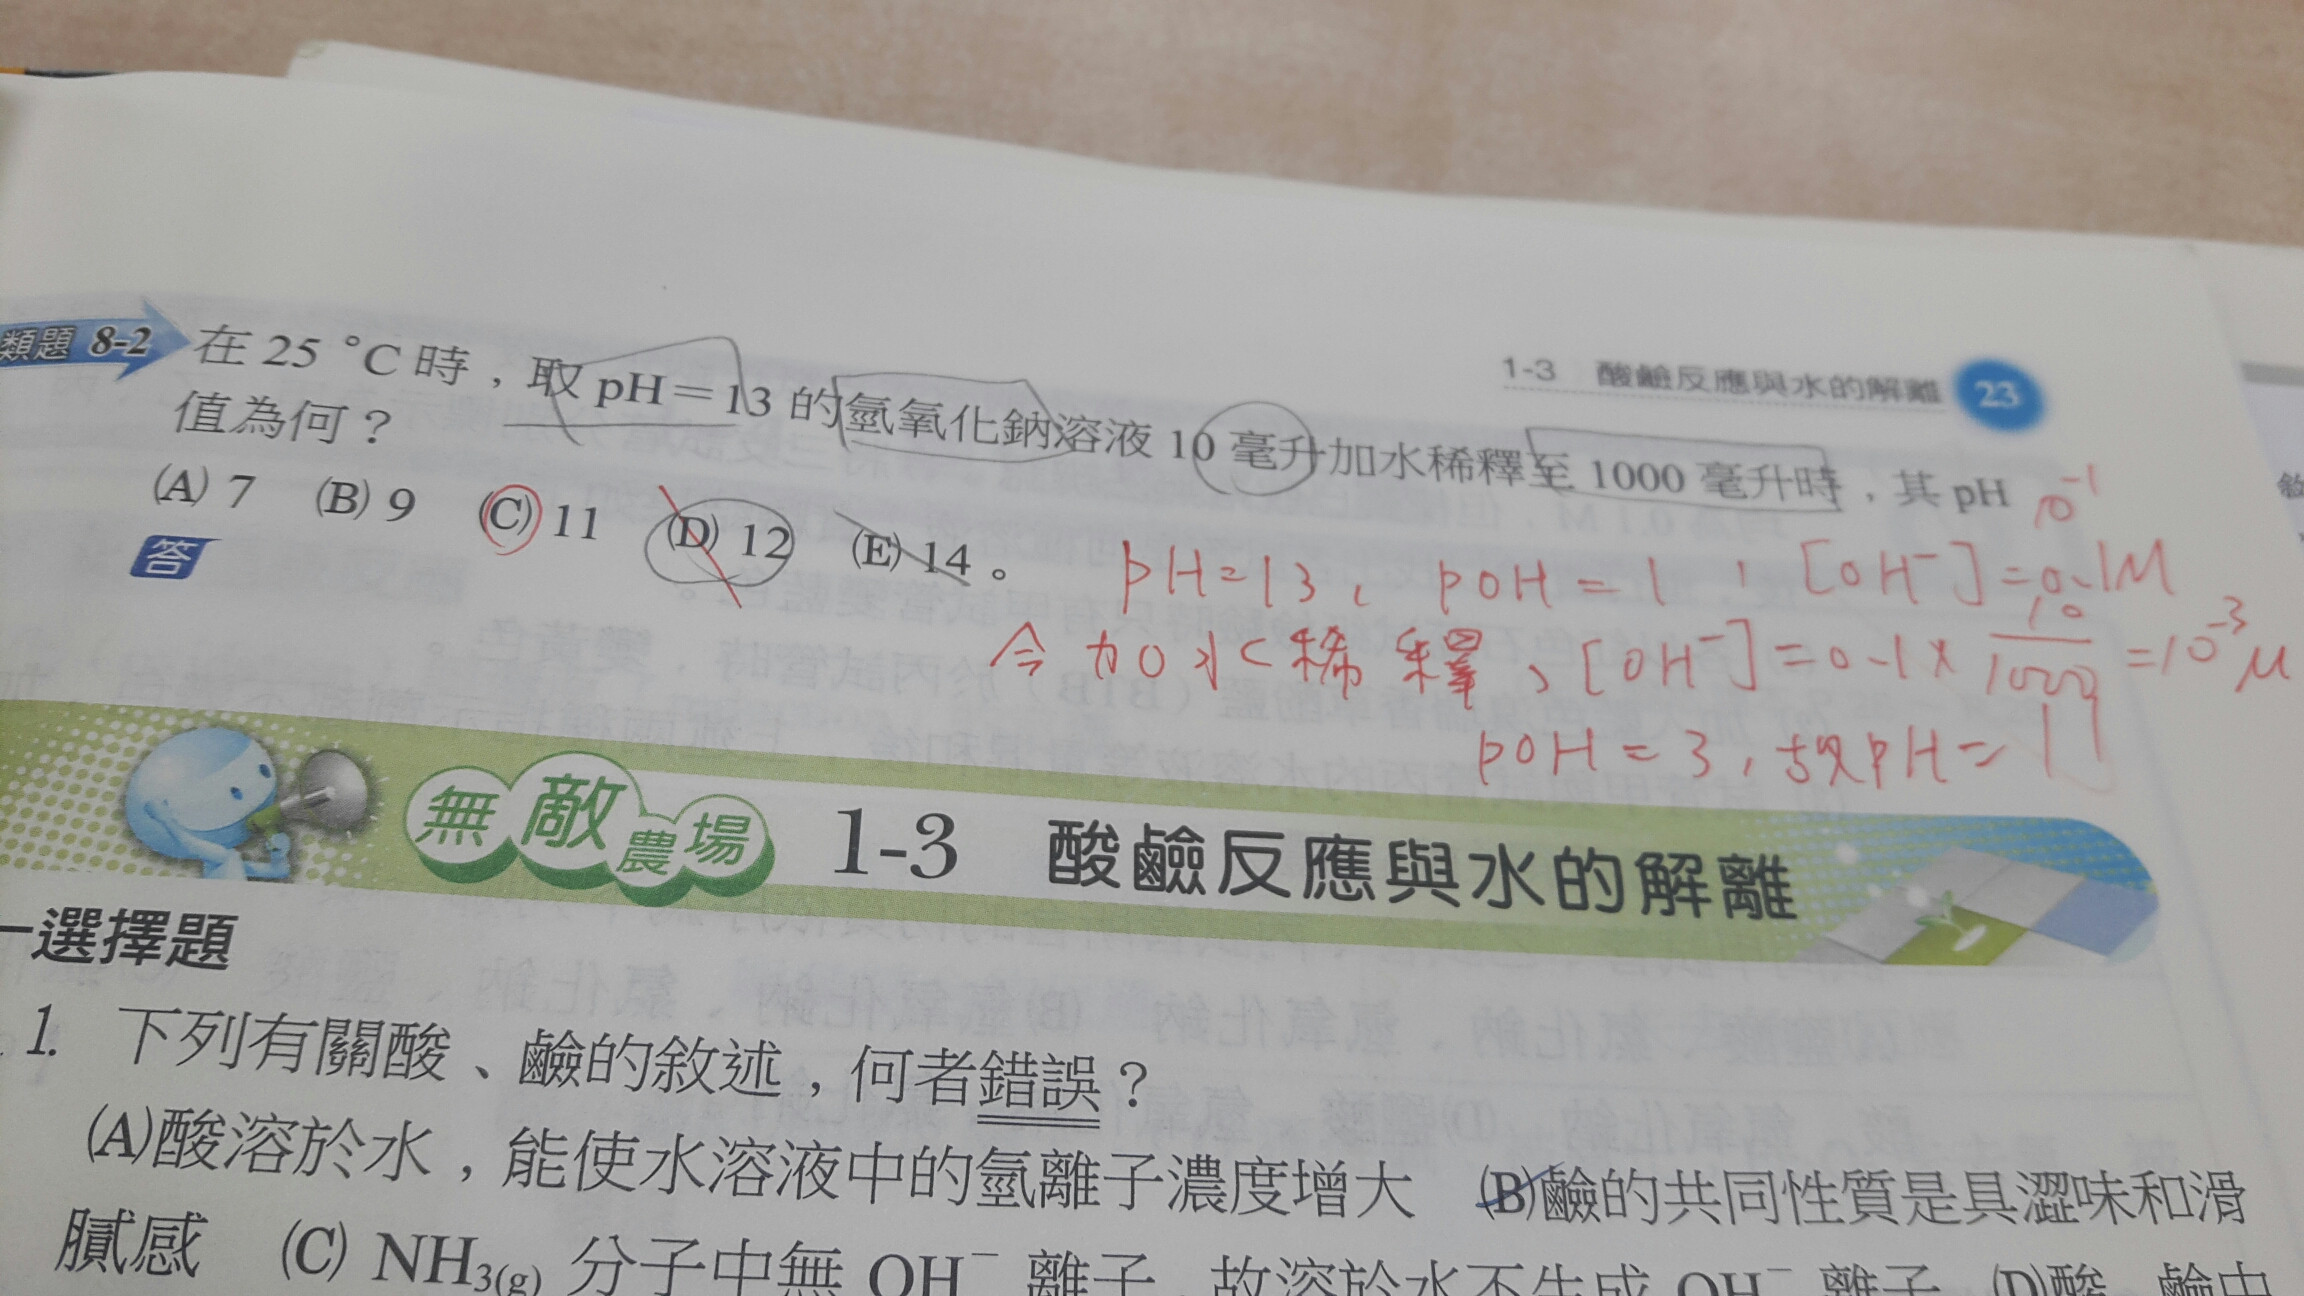 1-3 酸鹼反應與水的解離 23
類題 8-2 在 25 °C 時，取 pH＝13 的氫氧化鈉溶液 10 毫升加水稀釋至 1000 毫升時，其 pH
值為何？
(A) 7 (B) 9 (C) 11 (D) 12 (E) 14。
答
10⁻¹
pH=13，pOH=1，[OH⁻]=0.1M
今加水稀釋、[OH⁻]=0.1×10/1000=10⁻³M
pOH=3，故pH=11
無敵農場 1-3 酸鹼反應與水的解離
一選擇題
1. 下列有關酸、鹼的敘述，何者錯誤？
(A)酸溶於水，能使水溶液中的氫離子濃度增大 (B)鹼的共同性質是具澀味和滑
膩感 (C) NH₃(g) 分子中無 OH⁻ 離子，故溶於水不生成 OH⁻ 離子 (D)酸、鹼中